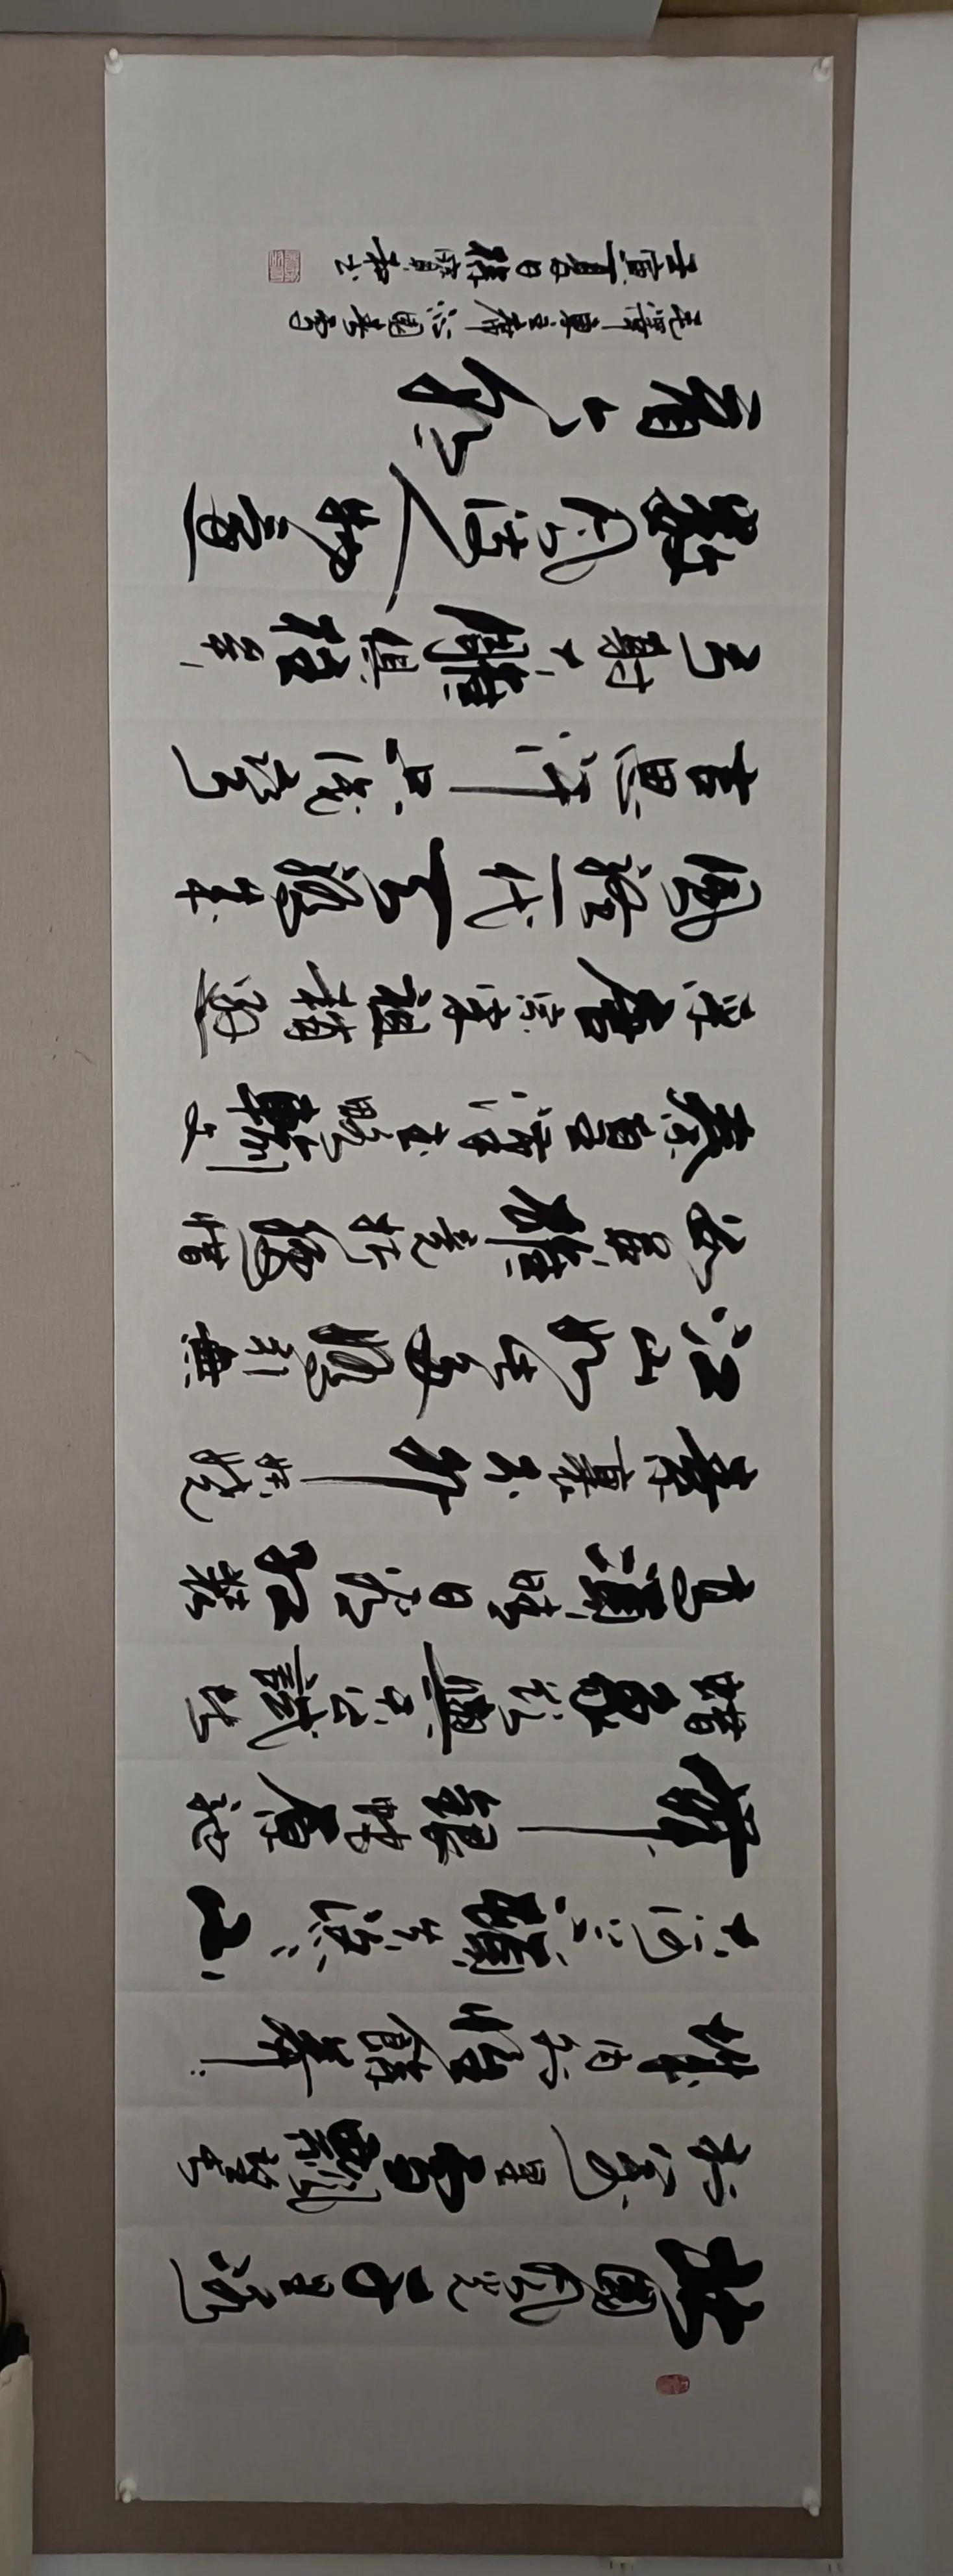 北國風光千里冰
封萬里雪飄望長
城内外惟餘莽〻
大河上下頓失滔〻山
舞銀蛇原馳
蠟象欲與天公試比
高須晴日看紅裝
素裹分外妖嬈
江山如此多嬌引無
數英雄競折腰惜
秦皇漢武略輸文
采唐宗宋祖稍遜
風騷一代天驕成
吉思汗只識彎
弓射大雕俱往矣
數風流人物還
看今朝
毛澤東主席沁園春雪
壬寅夏日寶和书